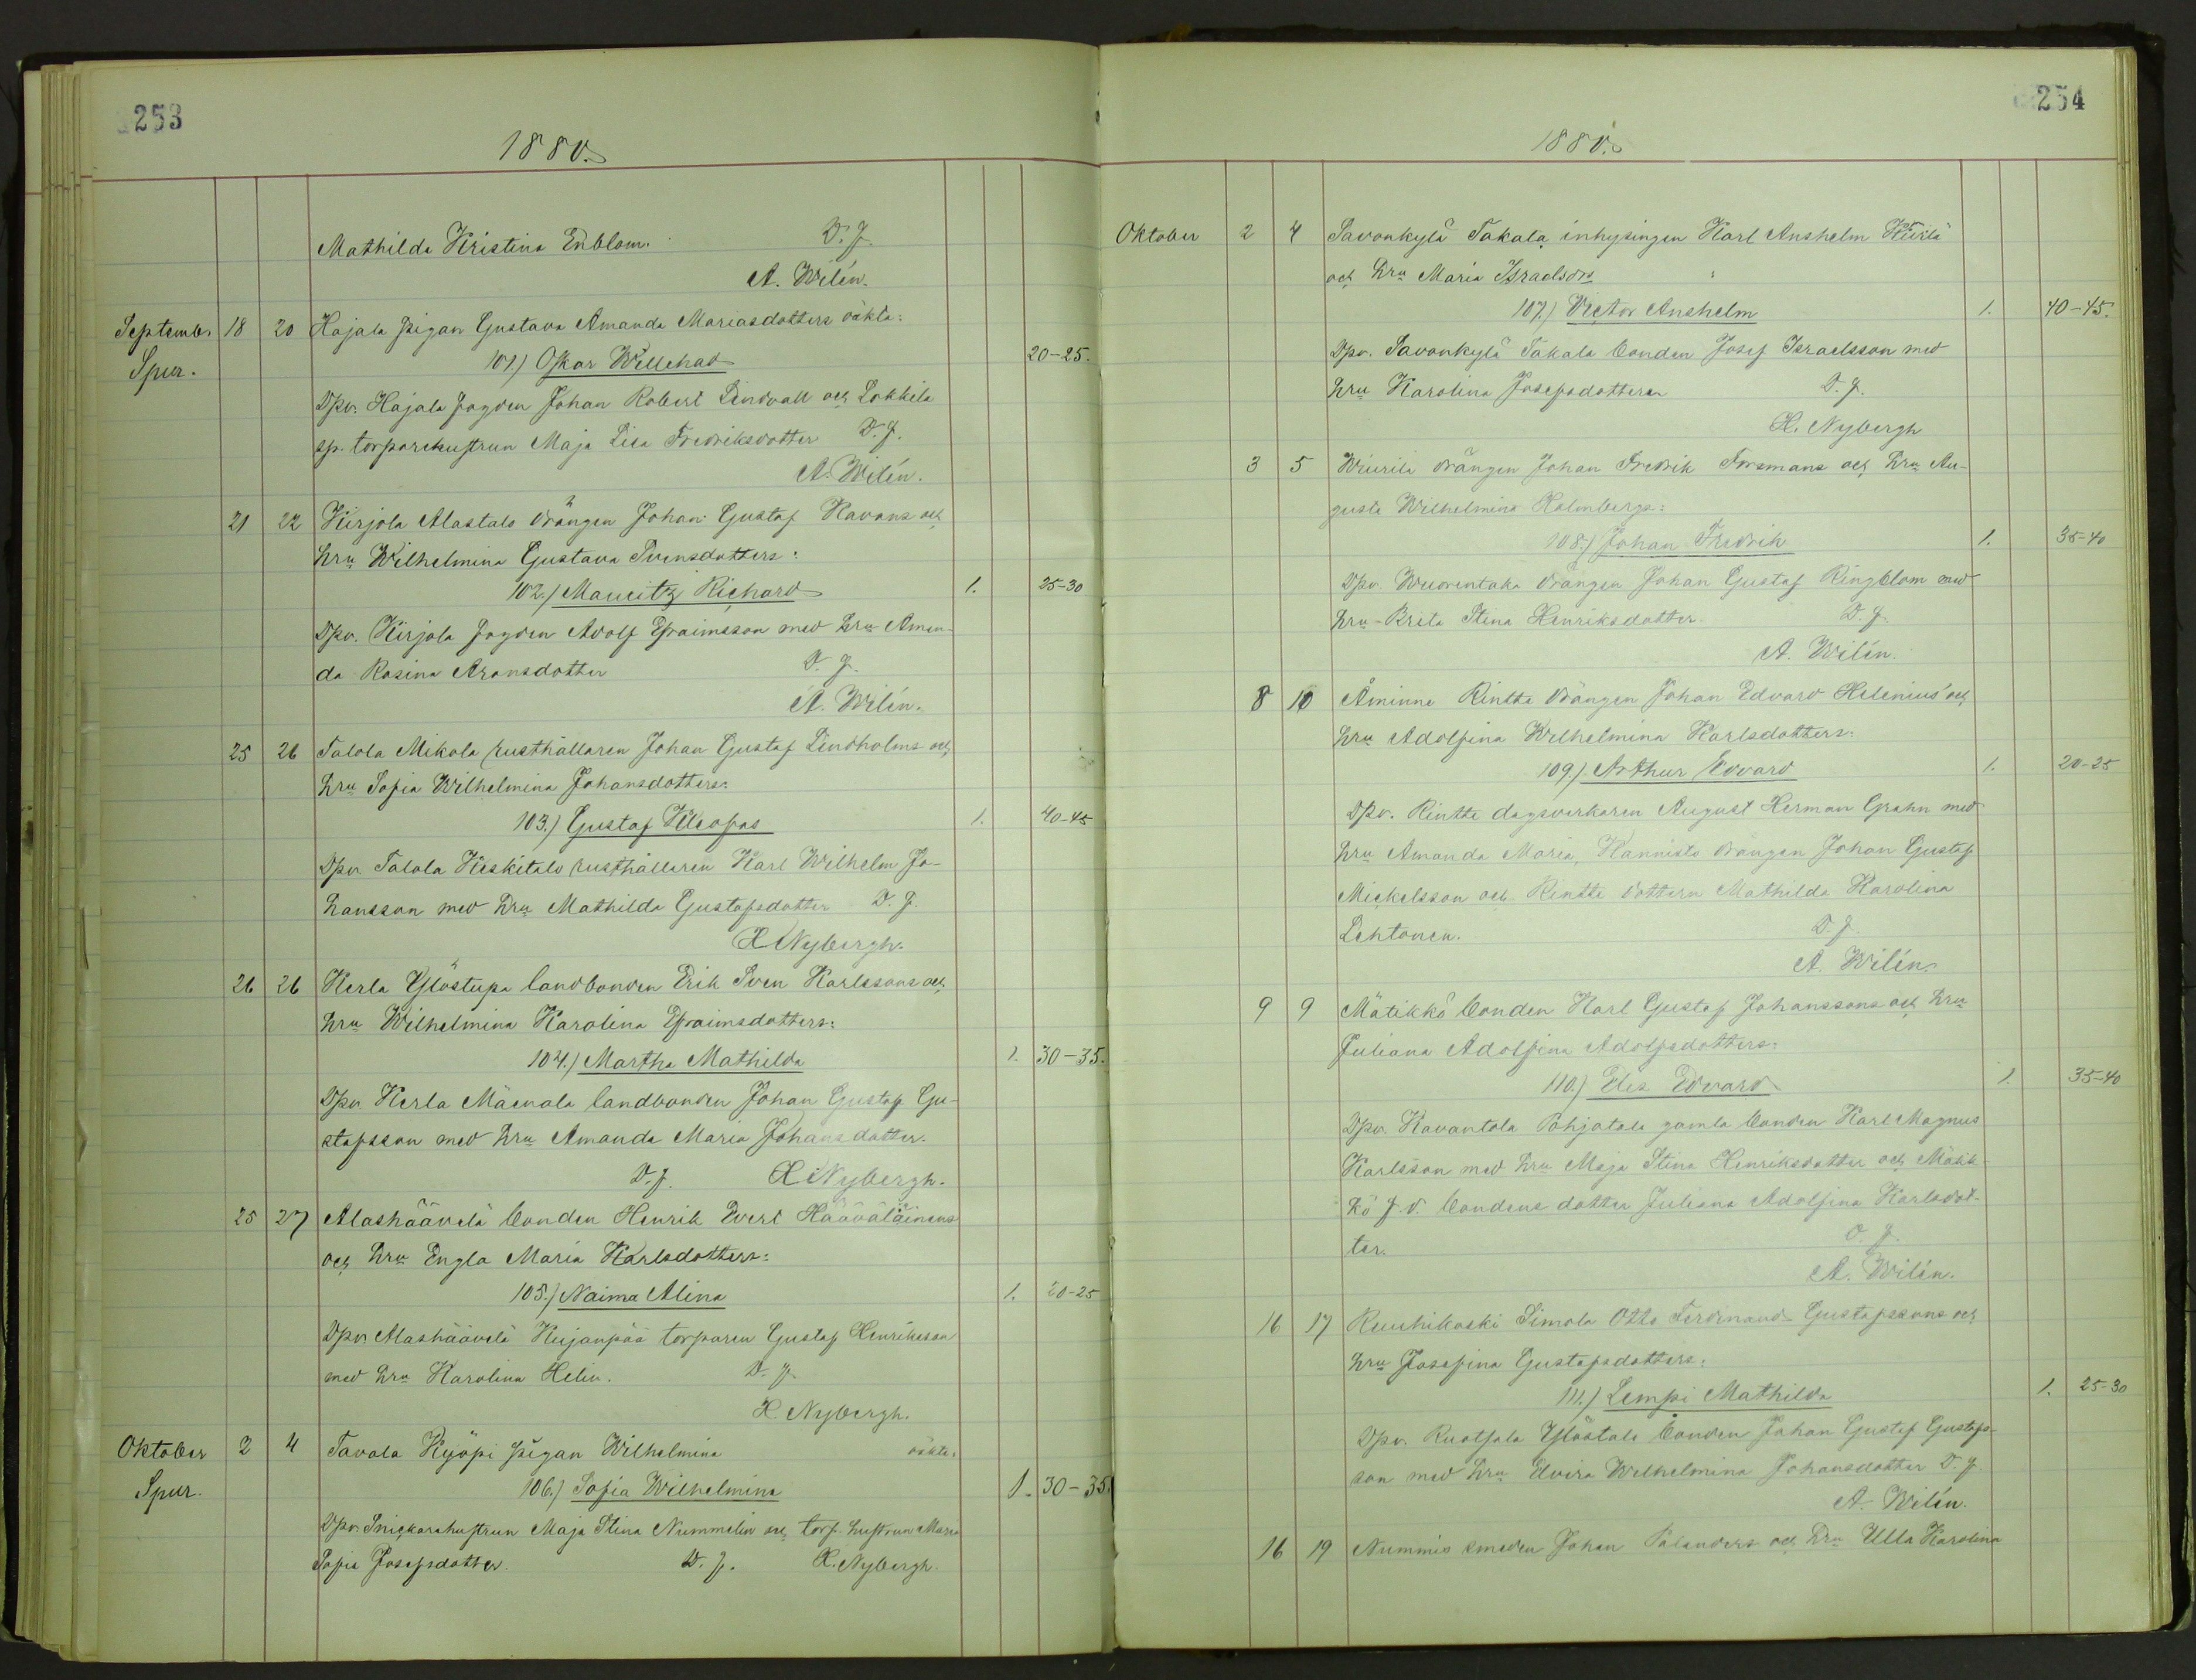 253
1880.
Mathilda Kristina Enblom. D. J.
A. Wilén.
Septemb. 18 20 Hajala pigan Gustava Amanda Mariasdotters oäkta:
Spur. 101.) Oskar Willehad 20-25.
Dpv. Hajala fogden Johan Robert Lindvall och Lokkila
sp. torparehustrun Maja Lisa Fredriksdotter D. J.
A. Wilén.
21 22 Kirjola Alastalo drängen Johan Gustaf Kavons och
hru Wilhelmina Gustava Svensdotters:
102.) Mauritz Richard 1. 25-30
Dpv. Kirjola fogden Adolf Efraimsson med hru Aman-
da Rosina Aronsdotter D. J.
A. Wilén.
25 26 Talola Mikola rusthållaren Johan Gustaf Lindholms och
hru Sofia Wilhelmina Johansdotters:
103.) Gustaf Kleopas 1. 40-45
Dpv. Talola Keskitalo rusthållaren Karl Wilhelm Jo-
hansson med hru Mathilda Gustafsdotter D. J.
H Nybergh.
26 26 Kerla Ylistupa landbonden Erik Sven Karlssons och
hru Wilhelmina Karolina Efraimsdotters:
104.) Martha Mathilda 1. 30-35.
Dpv. Kerla Mäenala landbonden Johan Gustaf Gu-
stafsson med hru Amanda Maria Johansdotter.
D. J. H Nybergh.
25 27 Alashäävelä bonden Henrik Evert Häävöläinens
och hru Engla Maria Karlsdotters:
105.) Naima Alina 1. 20-25
Dpv. Alashäävelä Kujanpää torparen Gustaf Henriksson
med hru Karolina Helin. D. J.
H. Nybergh.
Oktober 2 4 Tavola Kyöpi pigan Wilhelmina oäkta:
Spur. 106.) Sofia Wilhelmina 1. 30-35.
Dpv. Snickarehustrun Maja Stina Nummelin och torp. hustrun Maria
Sofia Josefsdotter. D. J. H. Nybergh.
254
1880.
Oktober 2 4 Savonkylä Takala inhysingen Karl Anshelm
och hru Maria Israelsdrs
107.) Victor Anshelm 1. 40-45.
Dpv. Savonkylä Takala bonden Josef Israelsson med
hru Karolina Josefsdotteren D. J.
H. Nybergh
3 5 Wiurila drängen Johan Fredrik Forsmans och hru Au-
gusta Wilhelmina Holmbergs:
108.) Johan Fredrik 1. 35-40
Dpv. Wuorentaka drängen Johan Gustaf Ringblom med
hru Brita Stina Henriksdotter. D. J.
A. Wilén.
8 10 Åminne Rintta drängen Johan Edvard Helenius' och
hru Adolfina Wilhelmina Karlsdotters:
109.) Arthur Edvard 1. 20-25
Dpv. Rintta dagsverkaren August Herman Grahn med
hru Amanda Maria, Kannisto drängen Johan Gustaf
Mickelsson och Rintta dottern Mathilda Karolina
Lehtonen. D. J.
A. Wilén.
9 9 Mätikkö bonden Karl Gustaf Johanssons och hru
Juliana Adolfina Adolfsdotters:
110.) Elis Edvard 1. 35-40
Dpv. Kavantola Pohjatalo gamla bonden Karl Magnus
Karlsson med hru Maja Stina Henriksdotter och Mätik-
kö f. d. bondens dotter Juliana Adolfina Karlsdot-
ter. D. J.
A. Wilén.
16 17 Ruuhikoski Simola Otto Ferdinand Gustafssons och
hru Josefina Gustafsdotters:
111.) Lempi Mathilda 1. 25-30
Dpv. Ruotsala Ylöstalo bonden Johan Gustaf Gustafs-
son med hru Elvira Wilhelmina Johansdotter D. J.
A. Wilén.
16 19 Nummis smeden Johan Salanders och hru Ulla Karolina